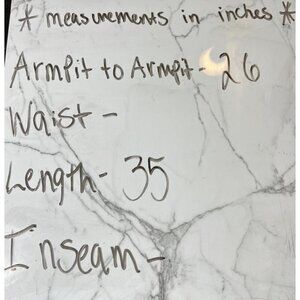 * measurements in inches *
Armpit to Armpit - 26
Waist -
Length - 35
Inseam -